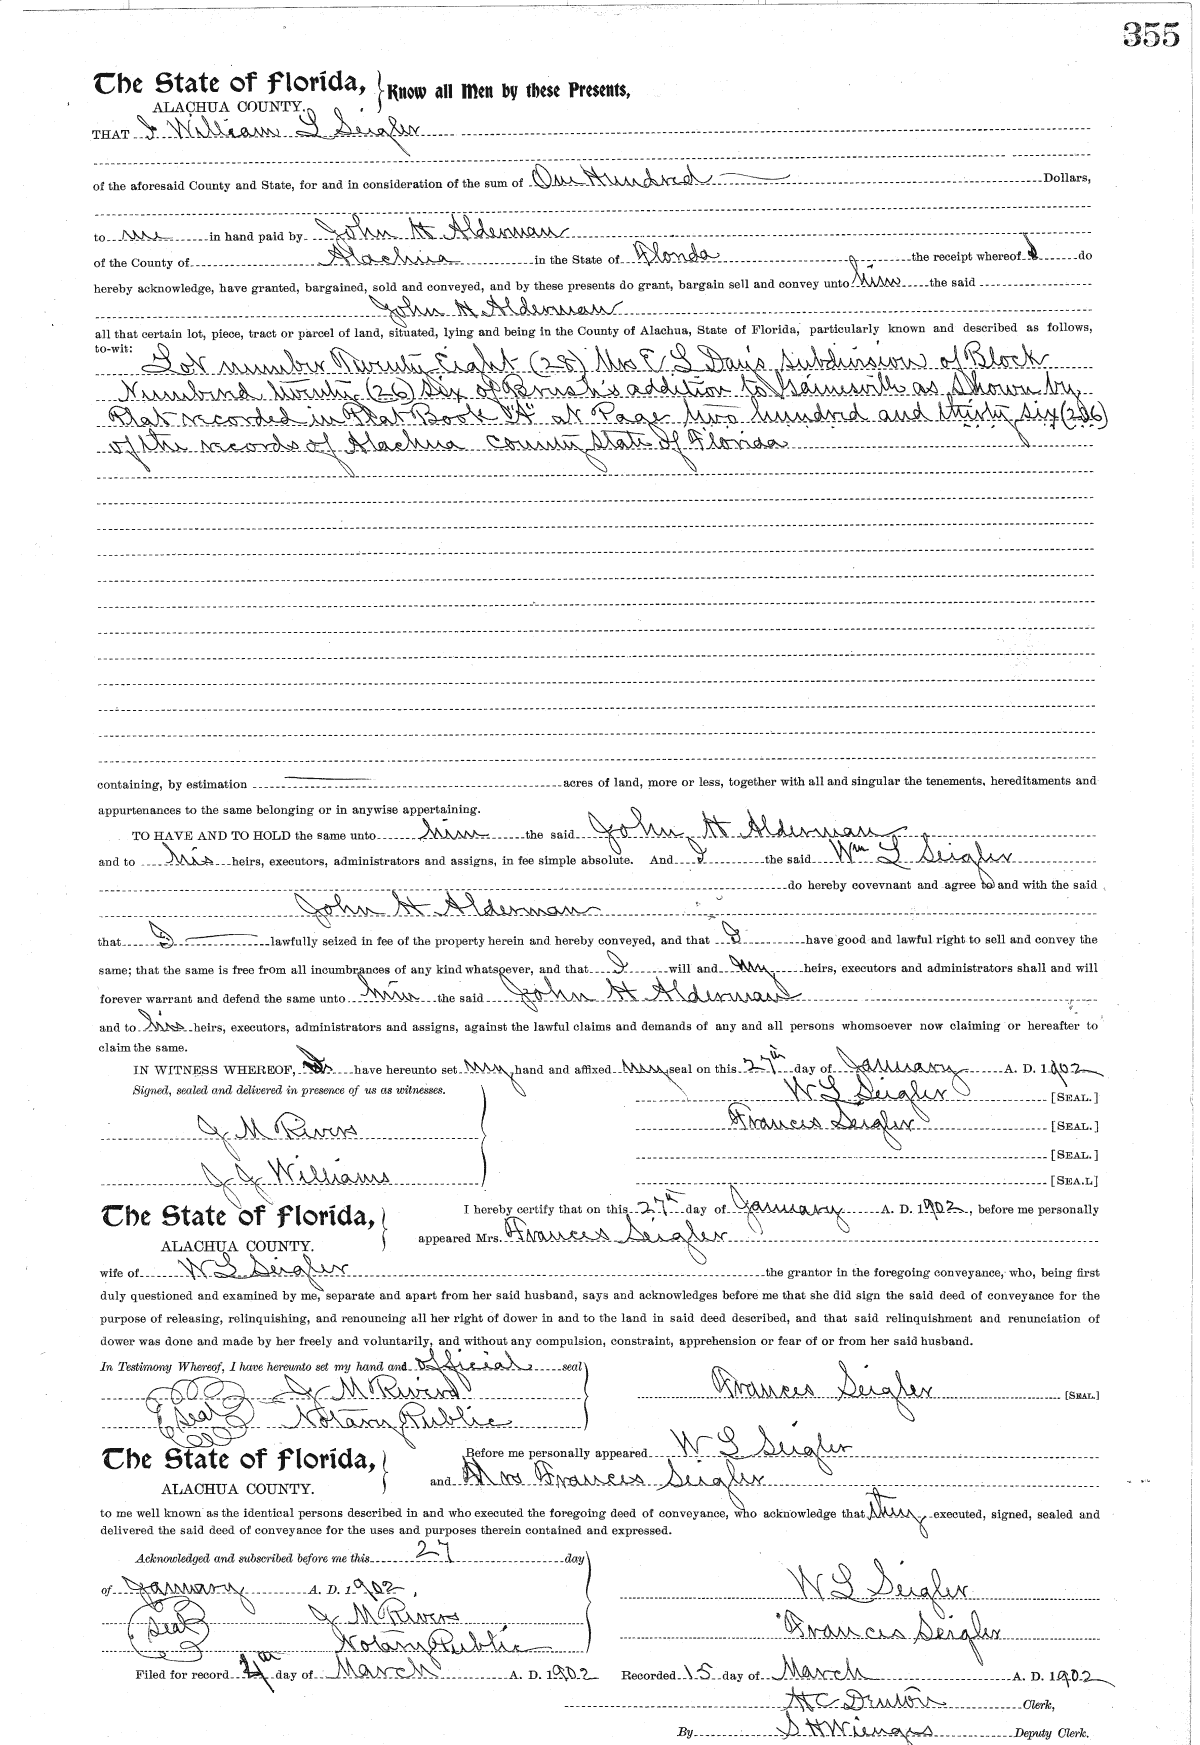 355
The State of Florida, Know all Men by these Presents,
ALACHUA COUNTY.
THAT I William L Seigler
of the aforesaid County and State, for and in consideration of the sum of One Hundred Dollars,
to me in hand paid by John H Alderman
of the County of Alachua in the State of Florida the receipt whereof I do
hereby acknowledge, have granted, bargained, sold and conveyed, and by these presents do grant, bargain sell and convey unto him the said
John H Alderman
all that certain lot, piece, tract or parcel of land, situated, lying and being in the County of Alachua, State of Florida, particularly known and described as follows,
to-wit: Lot number Twenty Eight (28) Mrs E L Days Subdivision of Block
Numbered twenty (26) Six of Brush's addition to Gainesville as Shown by
Plat recorded in Plat Book "A" at Page two hundred and thirty six (236)
of the records of Alachua County State of Florida
containing, by estimation acres of land, more or less, together with all and singular the tenements, hereditaments and
appurtenances to the same belonging or in anywise appertaining.
TO HAVE AND TO HOLD the same unto him the said John H Alderman
and to his heirs, executors, administrators and assigns, in fee simple absolute. And I the said Wm L Seigler
do hereby covevnant and agree to and with the said
John H Alderman
that I lawfully seized in fee of the property herein and hereby conveyed, and that I have good and lawful right to sell and convey the
same; that the same is free from all incumbrances of any kind whatsoever, and that I will and my heirs, executors and administrators shall and will
forever warrant and defend the same unto him the said John H Alderman
and to his heirs, executors, administrators and assigns, against the lawful claims and demands of any and all persons whomsoever now claiming or hereafter to
claim the same.
IN WITNESS WHEREOF, I have hereunto set my hand and affixed my seal on this 27th day of January A. D. 1902
Signed, sealed and delivered in presence of us as witnesses. W L Seigler [SEAL.]
J M Rivers Frances Seigler [SEAL.]
[SEAL.]
J J Williams [SEA.L]
The State of Florida, I hereby certify that on this 27th day of January A. D. 1902, before me personally
ALACHUA COUNTY. appeared Mrs. Frances Seigler
wife of W L Seigler the grantor in the foregoing conveyance, who, being first
duly questioned and examined by me, separate and apart from her said husband, says and acknowledges before me that she did sign the said deed of conveyance for the
purpose of releasing, relinquishing, and renouncing all her right of dower in and to the land in said deed described, and that said relinquishment and renunciation of
dower was done and made by her freely and voluntarily, and without any compulsion, constraint, apprehension or fear of or from her said husband.
In Testimony Whereof, I have hereunto set my hand and official seal
J M Rivers Frances Seigler [SEAL.]
Seal Notary Public
The State of Florida, Before me personally appeared W L Seigler
ALACHUA COUNTY. and Mrs Frances Seigler
to me well known as the identical persons described in and who executed the foregoing deed of conveyance, who acknowledge that they executed, signed, sealed and
delivered the said deed of conveyance for the uses and purposes therein contained and expressed.
Acknowledged and subscribed before me this 27 day
of January A. D. 1902, W L Seigler
Seal J M Rivers Frances Seigler
Notary Public
Filed for record 4th day of March A. D. 1902 Recorded 15 day of March A. D. 1902
H C Denton Clerk,
By S H Wienges Deputy Clerk.